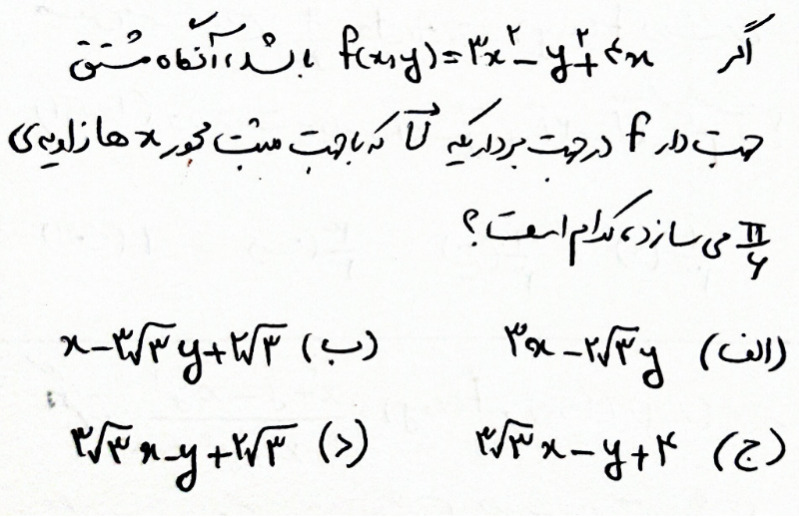 اگر f(x,y)=۳x^۲-y^۲+۴x باشد، آنگاه مشتق
جهت دار f در جهت بردار یکه U⃗ که با جهت مثبت محور x ها زاویه‌ی
π/۶ می سازد، کدام است؟
الف) ۳x-۲√۳y ب) x-۳√۳y+۲√۳
ج) ۳√۳x-y+۴ د) ۳√۳x-y+۲√۳